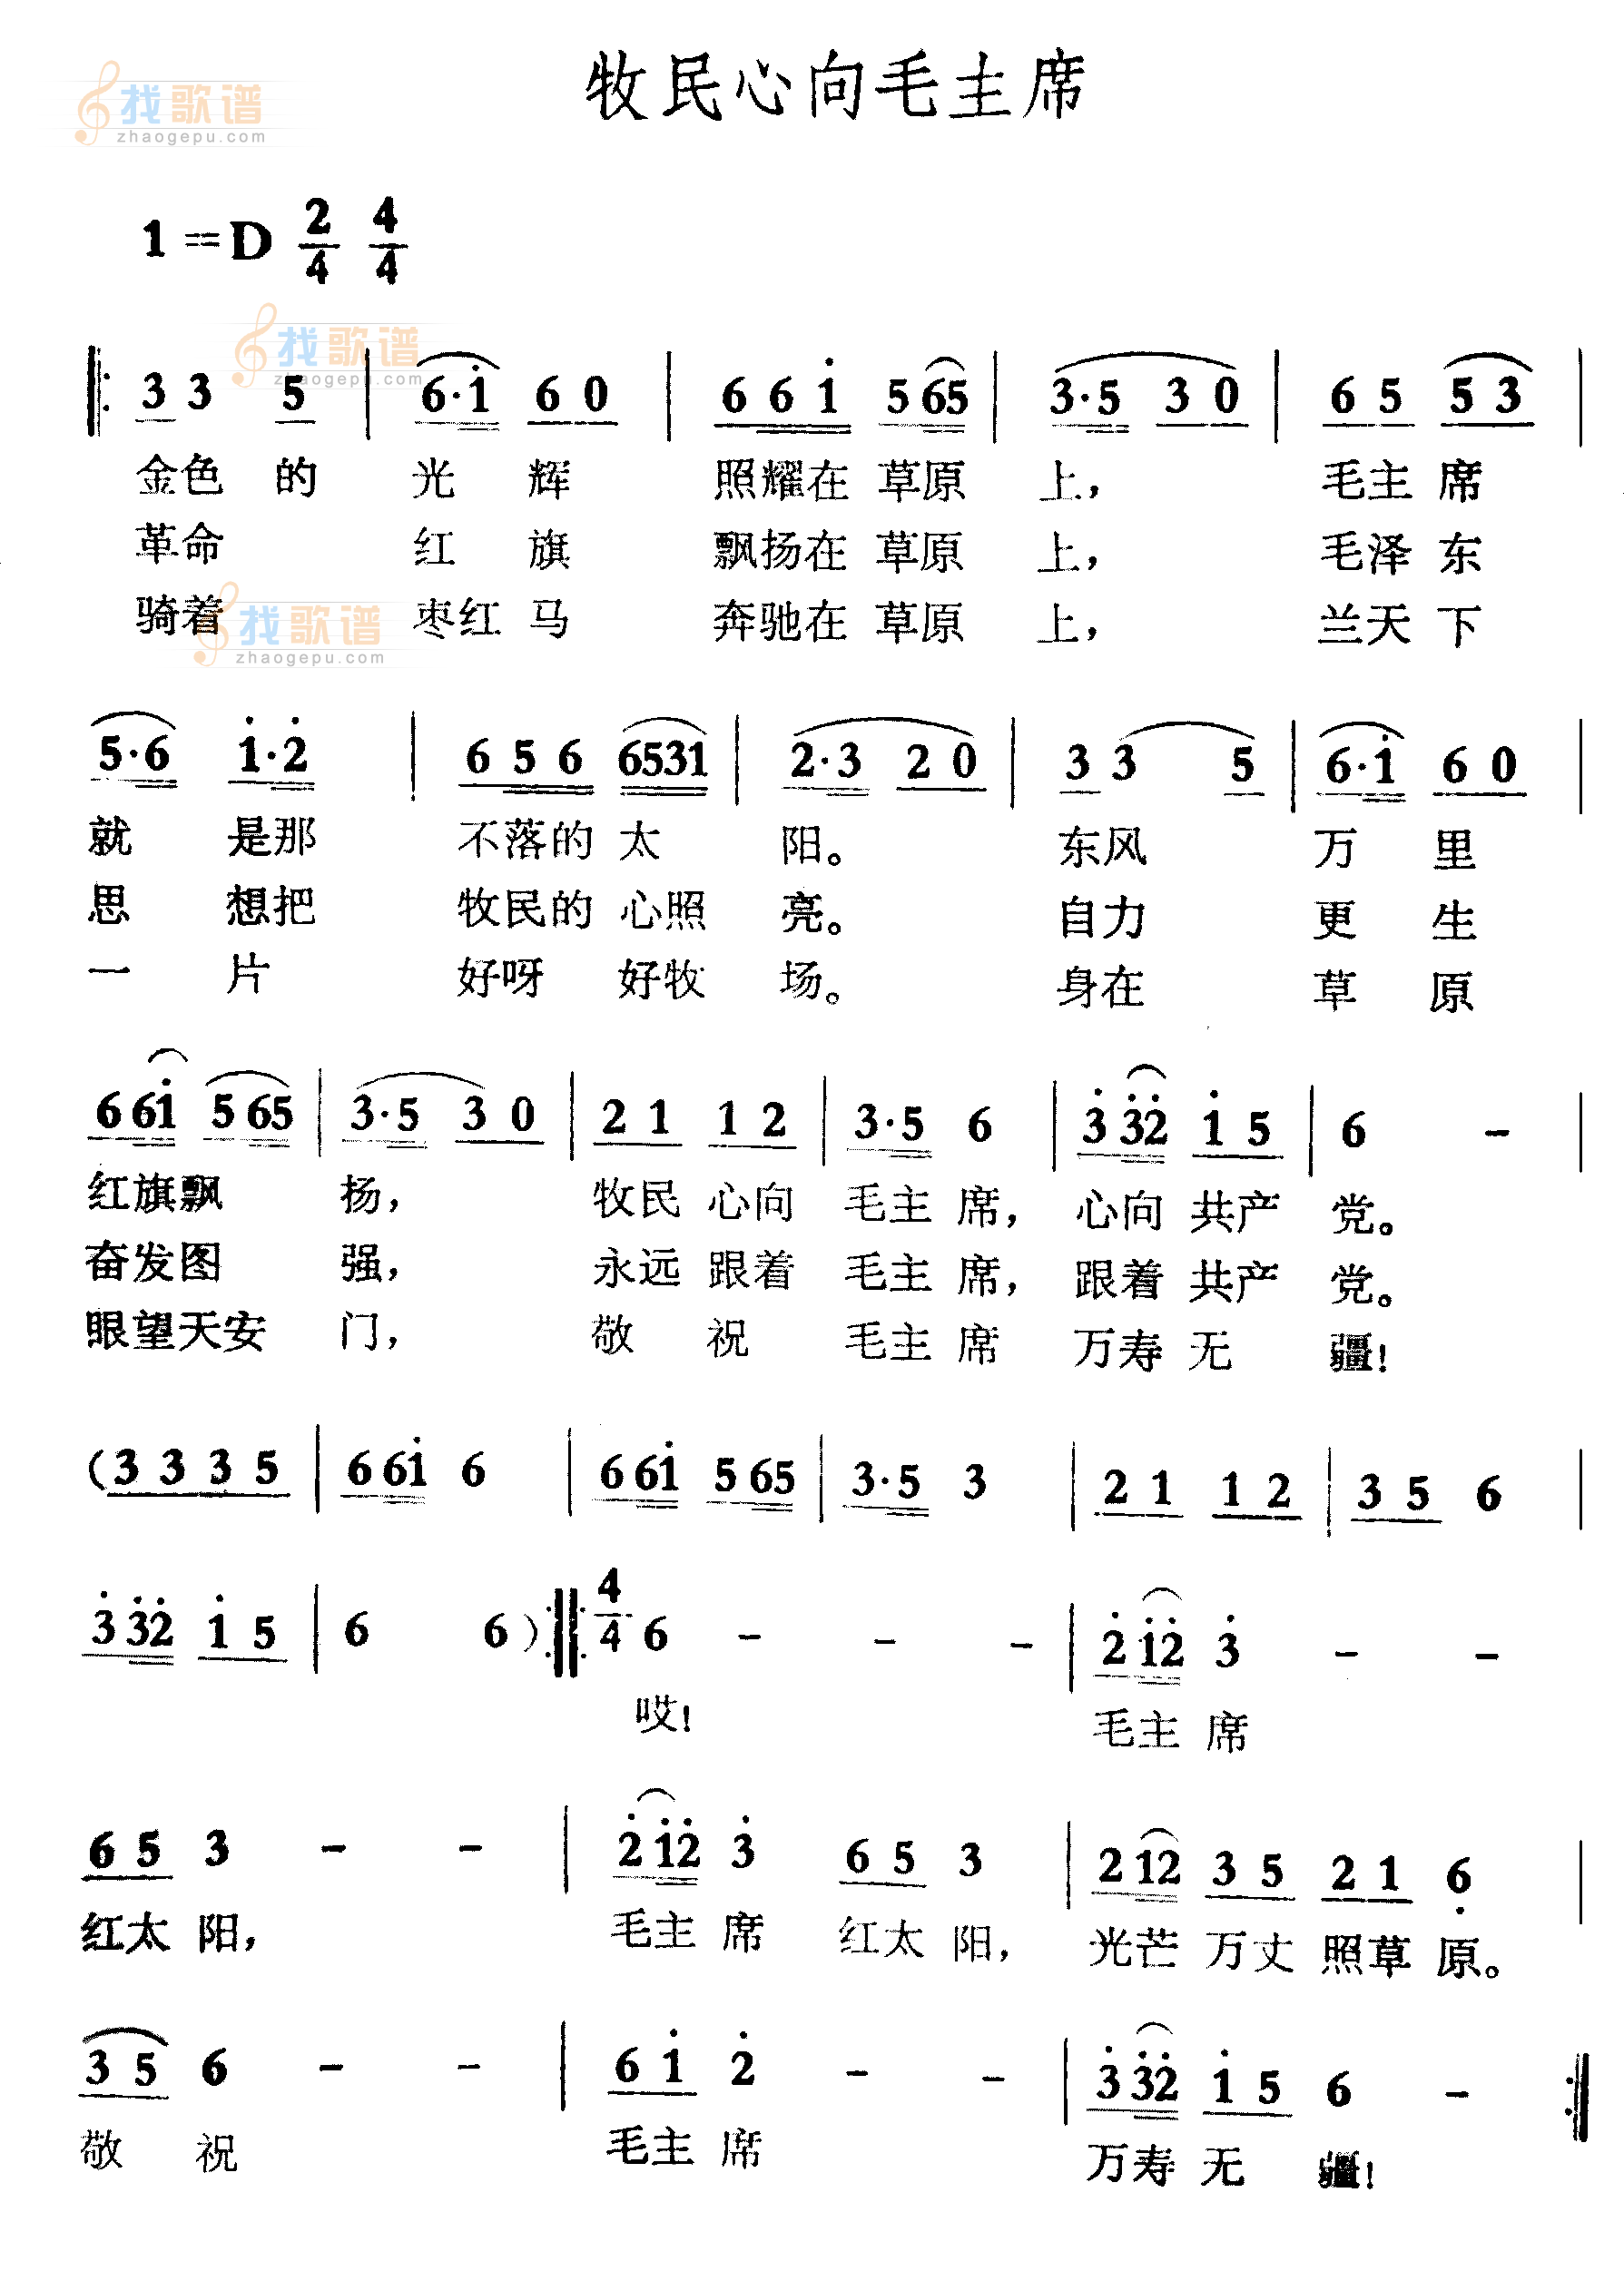 找歌谱
zhaogepu.com
牧民心向毛主席
1=D 2/4 4/4
找歌谱
zhaogepu.com
3 3 5 | 6·i 6 0 | 6 6 i 5 65 | 3·5 3 0 | 6 5 5 3 |
金色 的 光 辉 照耀在 草原 上， 毛主 席
革命 红 旗 飘扬在 草原 上， 毛泽 东
骑着 枣红 马 奔驰在 草原 上， 兰天 下
找歌谱
zhaogepu.com
5·6 i·2̇ | 6 5 6 6531 | 2·3 2 0 | 3 3 5 | 6·i 6 0 |
就 是那 不落的 太 阳。 东风 万 里
思 想把 牧民的 心照 亮。 自力 更 生
一 片 好呀 好牧 场。 身在 草 原
6 6i 5 65 | 3·5 3 0 | 2 1 1 2 | 3·5 6 | 3̇ 3̇2̇ i 5 | 6 - |
红旗飘 扬， 牧民 心向 毛主 席， 心向 共产 党。
奋发图 强， 永远 跟着 毛主 席， 跟着 共产 党。
眼望天安 门， 敬 祝 毛主 席 万寿 无 疆！
(3 3 3 5 | 6 6i 6 | 6 6i 5 65 | 3·5 3 | 2 1 1 2 | 3 5 6 |
3̇ 3̇2̇ i 5 | 6 6 ) :||: 4/4 6 - - - | 2̇ i2̇ 3̇ - - |
哎！ 毛主 席
6 5 3 - - | 2̇ i2̇ 3̇ 6 5 3 | 2 12 3 5 2 1 6̣ |
红太 阳， 毛主 席 红太 阳， 光芒 万丈 照草 原。
3 5 6 - - | 6 i 2̇ - - | 3̇ 3̇2̇ i 5 6 - :||
敬 祝 毛主 席 万寿 无 疆！